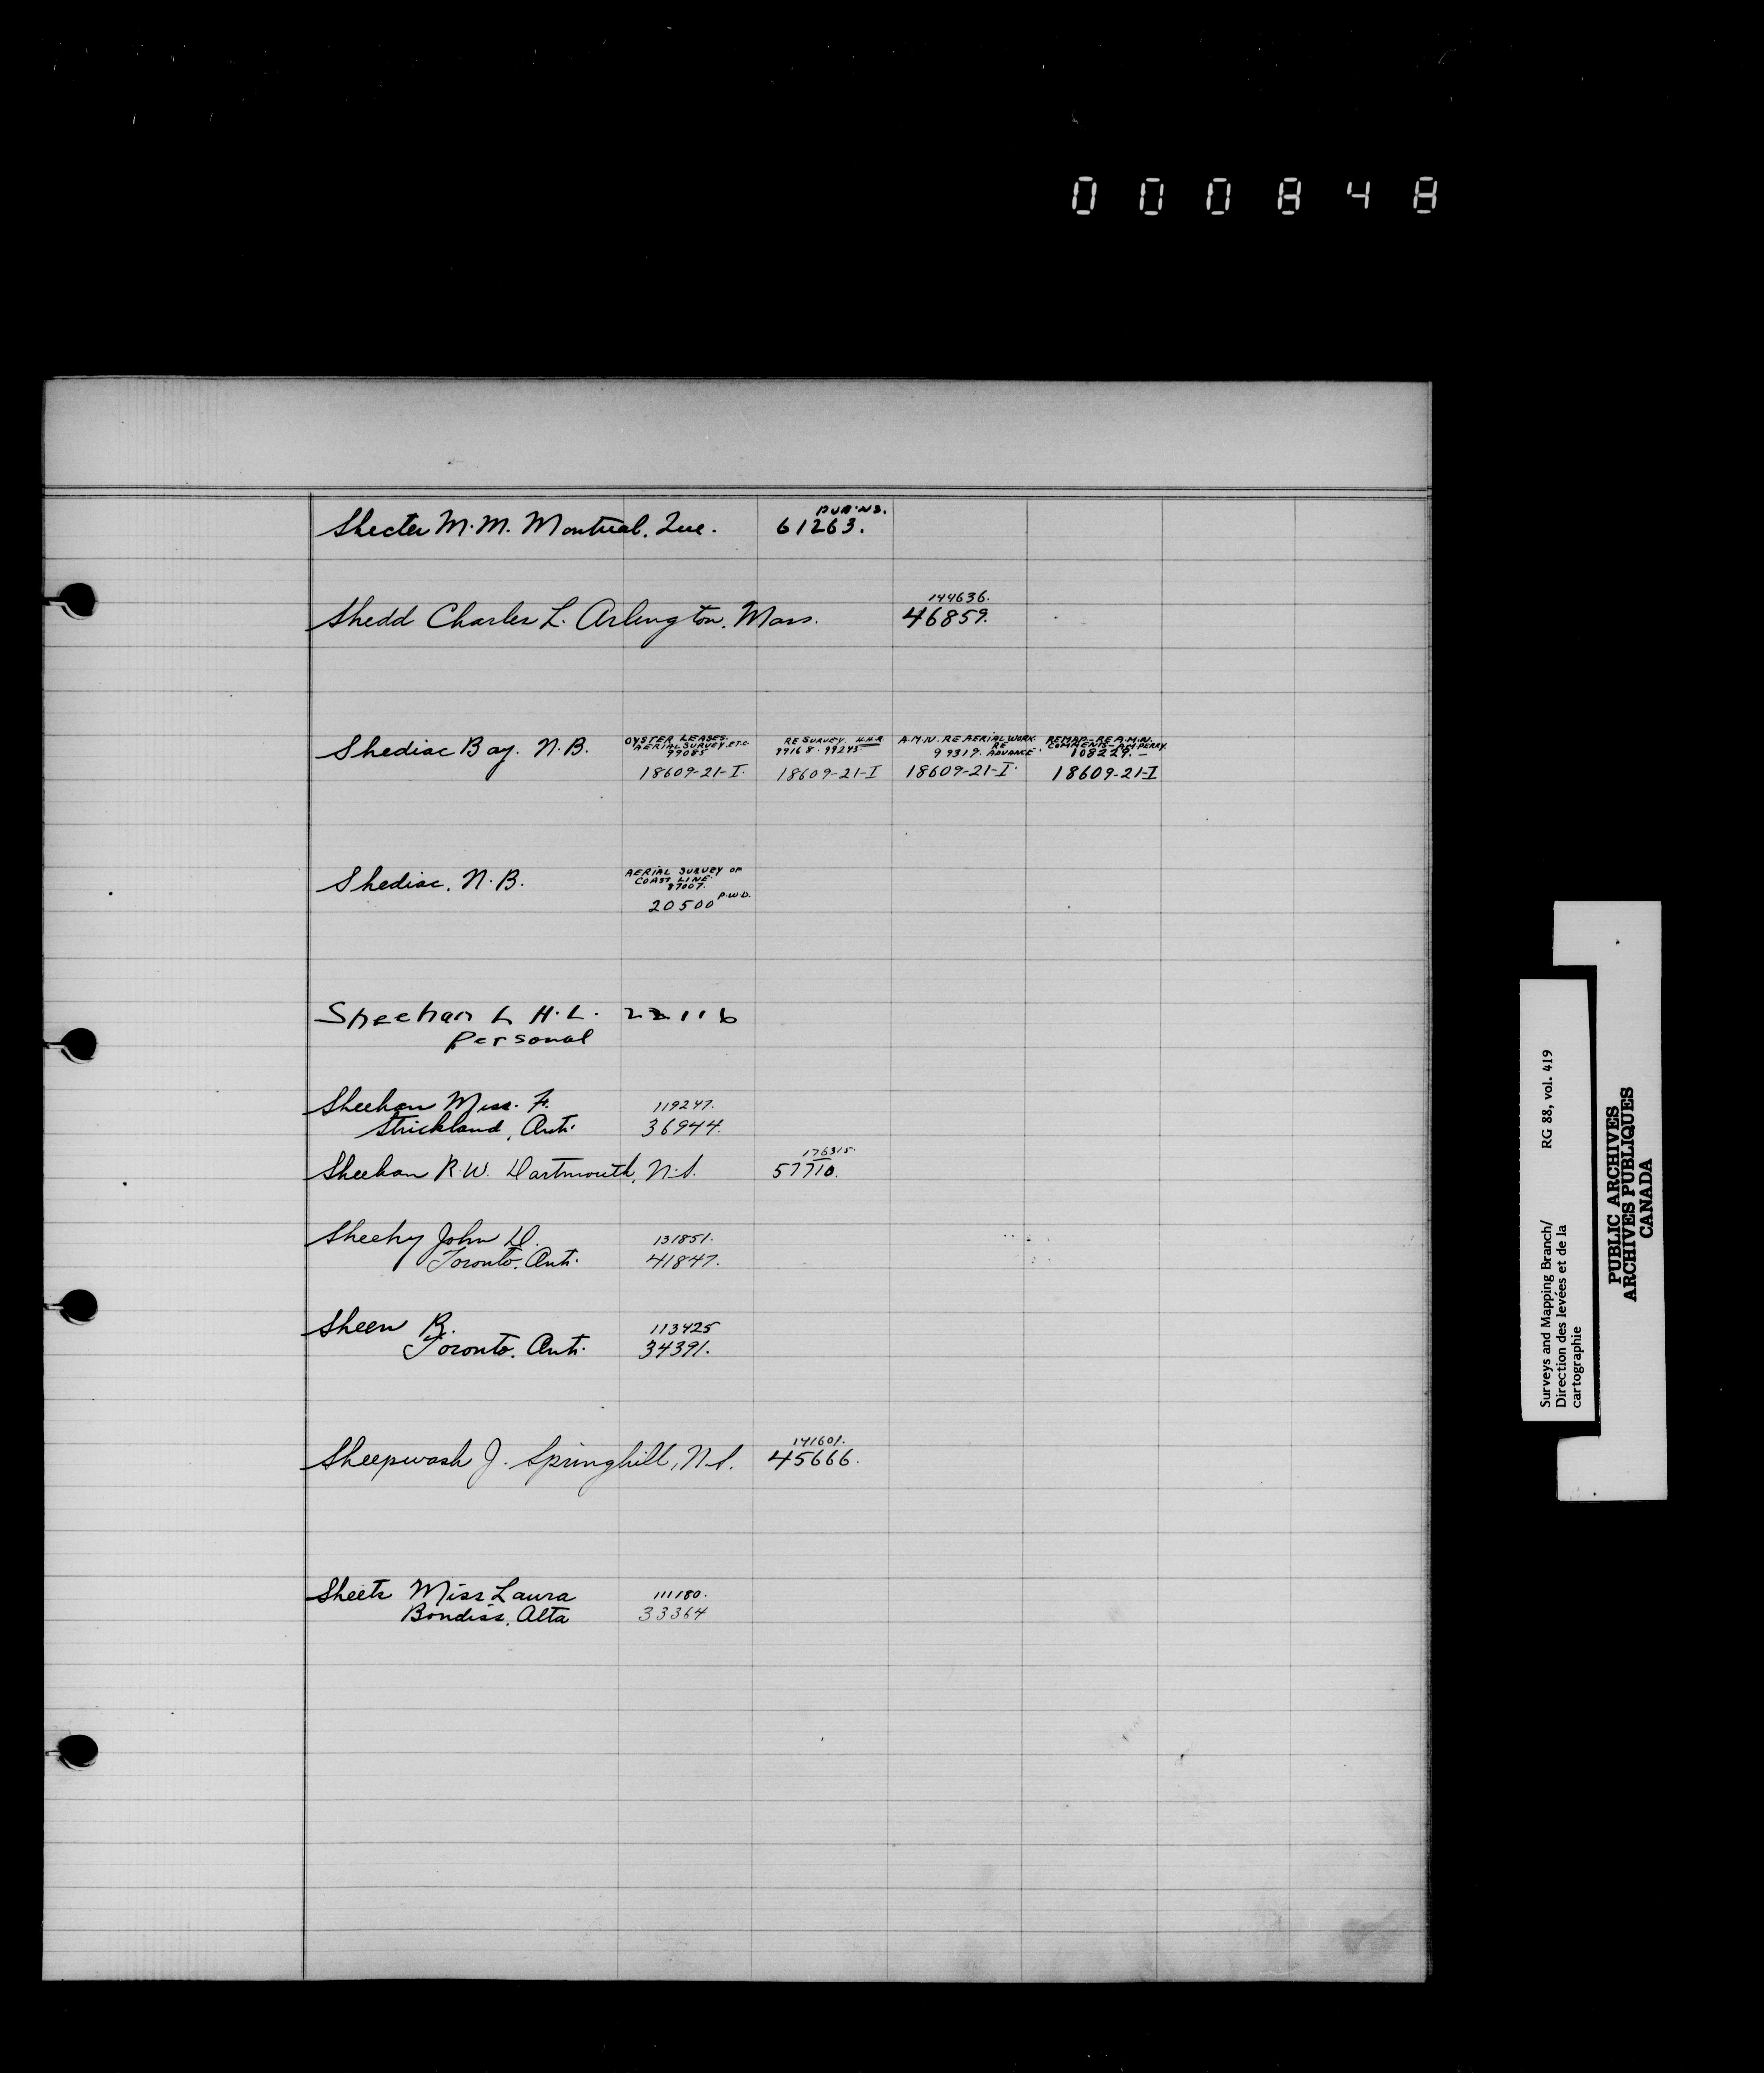 000848
Shecter M. M. Montreal. Que.
PUB'NS.
61263.
144636.
Shedd Charles L. Arlington. Mass. 46859.
OYSTER LEASES.
AERIAL SURVEY. ETC.
99085
RE SURVEY. H.H.R.
99168. 99245
A.M.N. RE AERIAL WORK.
RE
99319. ADVANCE.
REMAP - RE A.M.N.
COMMENTS - PERRY.
108229. -
Shediac Bay. N. B.
18609-21-I. 18609-21-I 18609-21-I. 18609-21-I
AERIAL SURVEY OF
COAST LINE.
Shediac, N. B.
20500 P.W.D.
Sheehan L H. L. 22116
Personal
Sheehan Miss. F. 119247.
Strickland, Ont. 36944.
176315.
Sheehan R. W. Dartmouth, N. S. 57710.
Sheehy John D. 131851.
Toronto. Ont. 41847.
Sheen R. 113425
Toronto. Ont. 34391.
141601.
Sheepwash J. Springhill, N. S. 45666.
Sheets Miss Laura 111180.
Bondiss, Alta 33364
Surveys and Mapping Branch/ RG 88, vol. 419
Direction des levées et de la
cartographie
PUBLIC ARCHIVES
ARCHIVES PUBLIQUES
CANADA